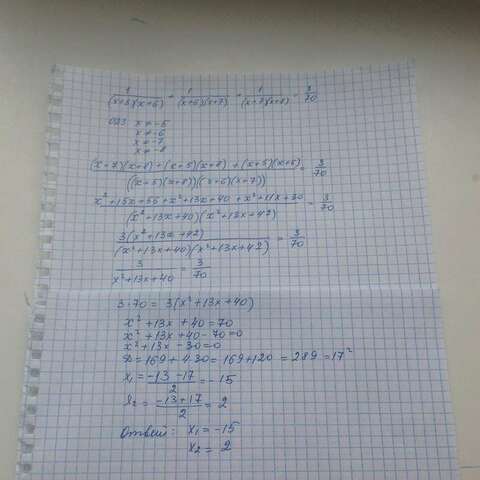 1/((x+5)(x+6)) + 1/((x+6)(x+7)) + 1/((x+7)(x+8)) = 3/70
ОДЗ: x ≠ -5
x ≠ -6
x ≠ -7
x ≠ -8
((x+7)(x+8)+(x+5)(x+8)+(x+5)(x+6))/(((x+5)(x+8))((x+6)(x+7))) = 3/70
(x²+15x+56+x²+13x+40+x²+11x+30)/((x²+13x+40)(x²+13x+42)) = 3/70
3(x²+13x+42)/((x²+13x+40)(x²+13x+42)) = 3/70
3/(x²+13x+40) = 3/70
3·70 = 3(x²+13x+40)
x²+13x+40=70
x²+13x+40-70=0
x²+13x-30=0
D=169+4·30=169+120=289=17²
x₁=(-13-17)/2=-15
x₂=(-13+17)/2=2
Ответ: x₁=-15
x₂=2